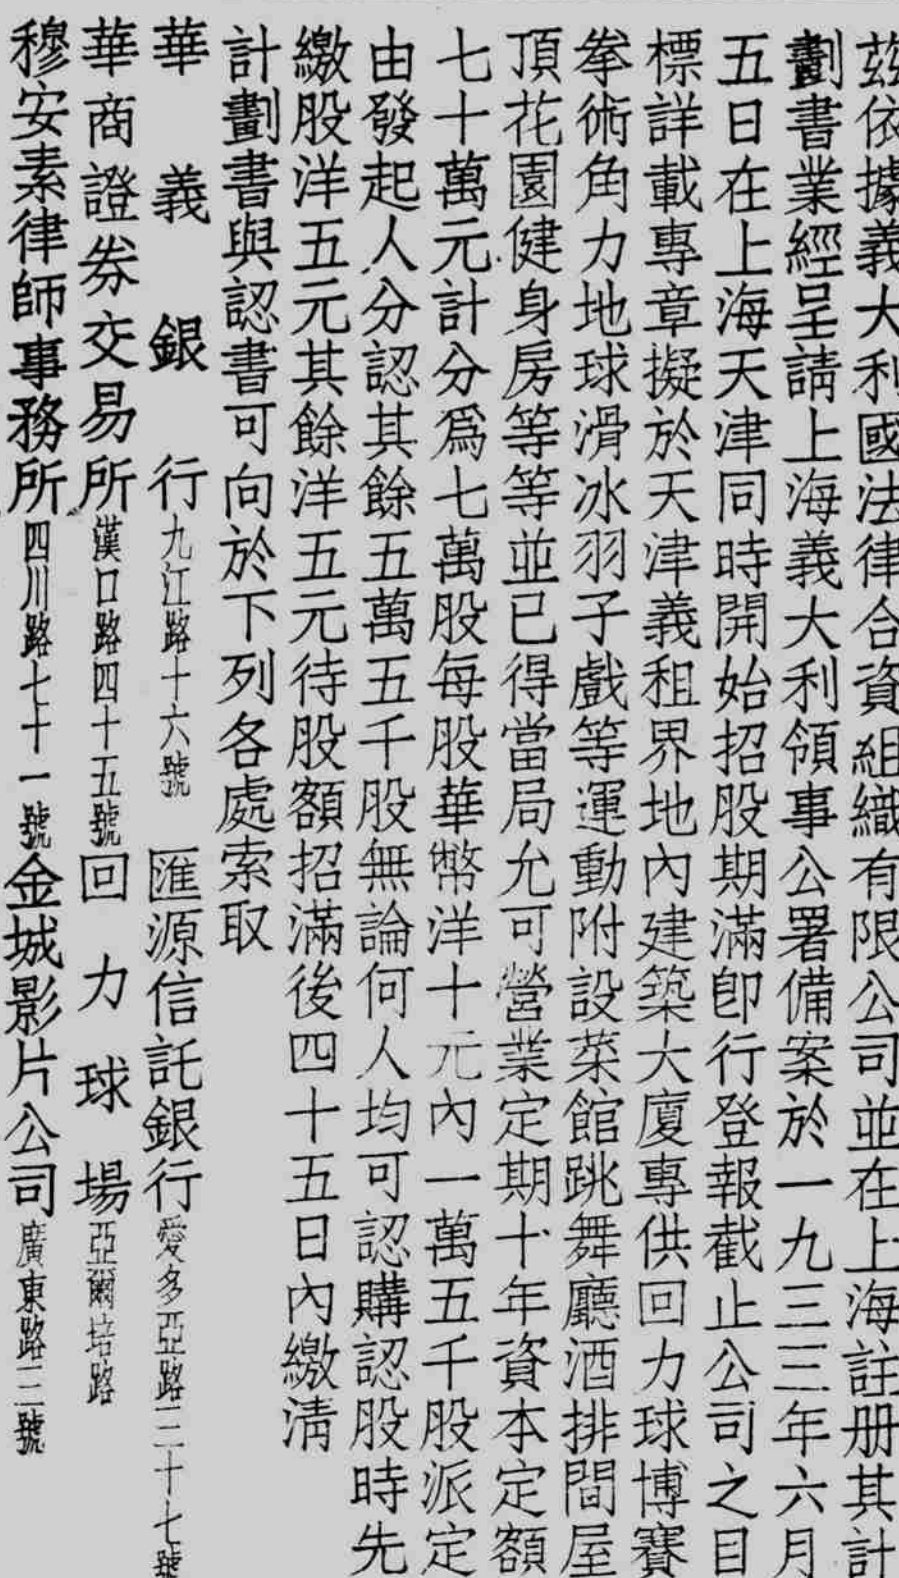 茲依據義大利國法律合資組織有限公司並在上海註册其計
劃書業經呈請上海義大利領事公署備案於一九三三年六月
五日在上海天津同時開始招股期滿卽行登報截止公司之目
標詳載專章擬於天津義租界地內建築大廈專供回力球博賽
拳術角力地球滑冰羽子戲等運動附設菜館跳舞廳酒排間屋
頂花園健身房等等並已得當局允可營業定期十年資本定額
七十萬元計分爲七萬股每股華幣洋十元內一萬五千股派定
由發起人分認其餘五萬五千股無論何人均可認購認股時先
繳股洋五元其餘洋五元待股額招滿後四十五日內繳清
計劃書與認書可向於下列各處索取
華義銀行九江路十六號 匯源信託銀行愛多亞路三十七號
華商證券交易所漢口路四十五號 回力球場亞爾培路
穆安素律師事務所四川路七十一號 金城影片公司廣東路三號